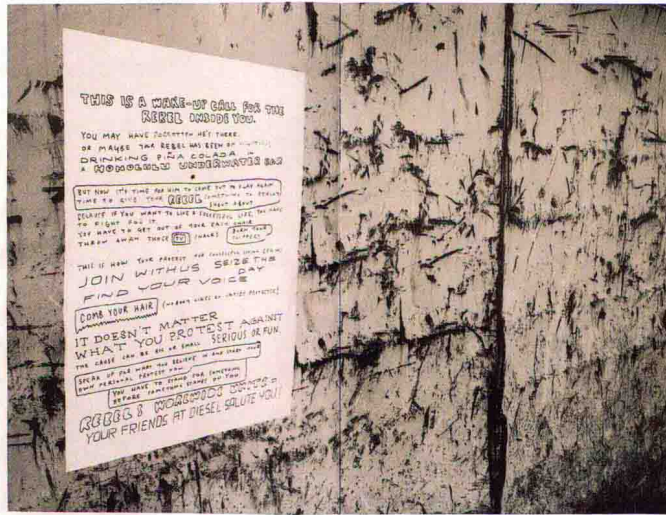 THIS IS A WAKE-UP CALL FOR THE
REBEL INSIDE YOU.
YOU MAY HAVE FORGOTTEN HE'S THERE.
OR MAYBE THE REBEL HAS BEEN ON
DRINKING PIÑA COLADA IN
A HONOLULU UNDERWATER BAR
BUT NOW IT'S TIME FOR HIM TO COME OUT TO PLAY AGAIN
TIME TO GIVE YOUR REBEL SOMETHING TO SERIOUS
SHOUT ABOUT
BECAUSE IF YOU WANT TO LIVE A SUCCESSFUL LIFE, YOU HAVE
TO FIGHT FOR IT.
YOU HAVE TO GET OUT OF YOUR EASY CHAIR
THROW AWAY THOSE TV BURN YOUR
SLIPPERS
THIS IS HOW YOUR PROTEST FOR SUCCESSFUL LIVING
JOIN WITH US SEIZE THE
DAY
FIND YOUR VOICE
COMB YOUR HAIR (NOBODY LIKES AN UNTIDY PROTESTER)
IT DOESN'T MATTER
WHAT YOU PROTEST AGAINST
THE CAUSE CAN BE BIG OR SMALL SERIOUS OR FUN.
SPEAK UP FOR WHAT YOU BELIEVE IN AND START YOUR
OWN PERSONAL PROTEST NOW
YOU HAVE TO STAND FOR SOMETHING
BEFORE SOMETHING STANDS ON YOU
YOUR FRIENDS AT DIESEL SALUTE YOU!